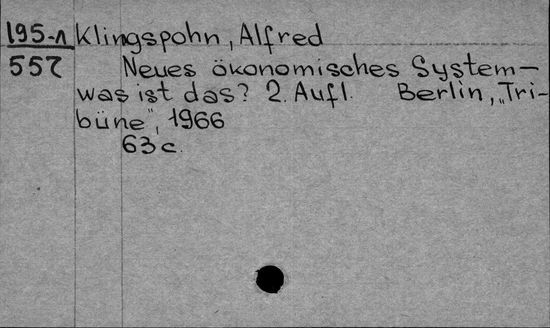 195-1 Klingspohn, Alfred
557 Neues ökonomisches System-
was ist das? 2. Aufl. Berlin, „Tri-
büne", 1966
63 c.